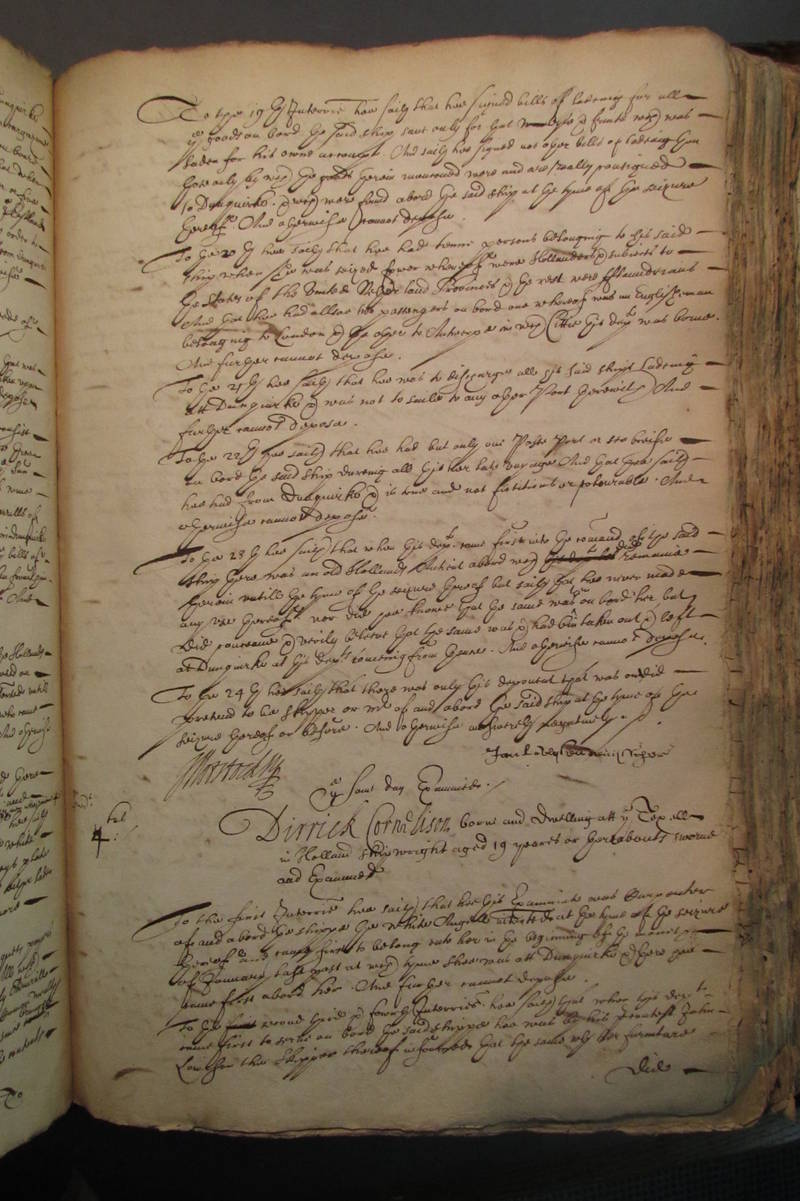 To the 19th Interrie hee saith that hee signed bills of ladeing for all
ye goods on bord the said ship save only for that which was
laden for his owne accompt. And saith hee signed not other bills of ladeing then
those only by which the goods therein mentioned were and are really consigned
to Dunquirke. which were found abord the said ship at the tyme of the seizure
thereof. And otherwise cannot depose.
To the 20th hee saith that hee had persons belonging to his said
ship when shee was seized fower whereof were Hollanders subiects to
the States of the United Netherland Provinces the rest were fflaunderians
And that hee had alsoe two passengers on bord one whereof was an Englishman
belonging to London the other to Antwerpe in which Cittie this dept was borne.
And further cannot depose.
To the 21th hee saith that hee was to discharge all his said ships Ladeing
att Dunquirke was not to saile to any other Port therewith And
further cannot depose.
To the 22th hee saith that hee had but only one Passe Port or sea breife
on bord the said ship dureing all this her late voyage And that hee saith
hee had from Dunquirke is true and not fictitious or colourable. And
otherwise cannot depose.
To the 23th hee saith that when this dept. came first into the comand of the said
ship there was an old Hollands Antient abord which remaine
therein untill the tyme of the seizure thereof but saith that hee never made
any use thereof nor did hee knowe that the same was on bord her but
did conceave verily beleeve that the same was had bin taken out left
at Dunquirke at this depts comeing from thence. And otherwise cannot depose.
To the 24th hee saith that there was only this deponent that was or did
pretend to be skipper or mr of and abord the said ship at the tyme of the
seizure thereof or before. And otherwise answereth negatively.
ye same day Examined.
Dirrick Cornelison borne and dwelling att ye Texell
in Holland shipwright aged 19 yeares or thereabouts sworne
and Examined
To the first Interrie hee saith that hee this Examinate was Carpenter
of and abord the shippe the white Angell at the tyme of the seizure
thereof and came first to belong unto her in the beginning of the moneth
of January last past at which tyme shee was att Dunquirke there hee
came first abord her. And further cannot depose.
To the second third fowerth Interries. hee saith that when this dept
came first to serve on bord the said shippe hee was by
the skipper thereof that the same furniture
did